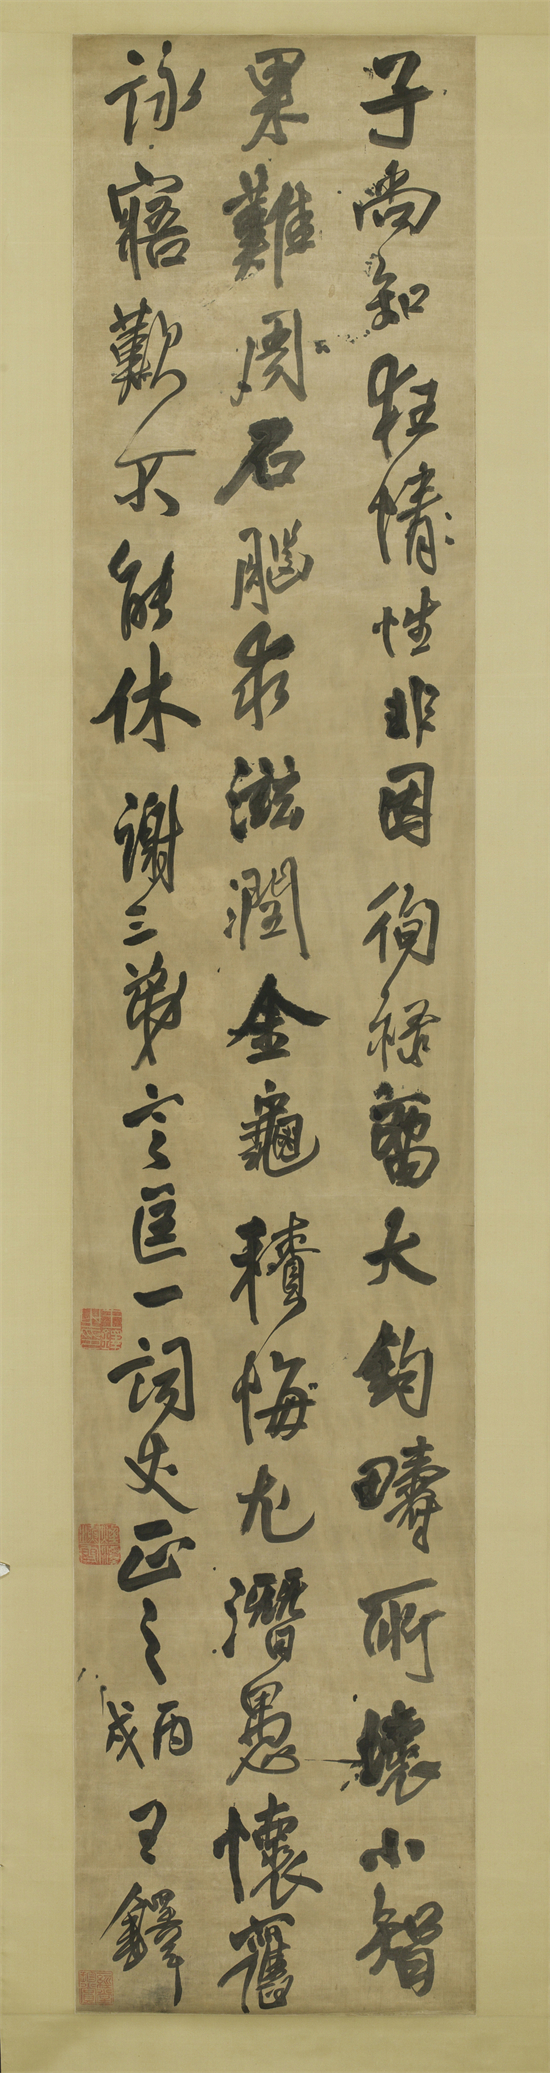 子尚知狂情性非因徇祿萬大鈞疇所壞小智
果難周石腦求滋潤金龜積悔尤潛愚懷舊
詠寤歎不能休 謝三弟六言匡一詞丈正之丙戌王鐸